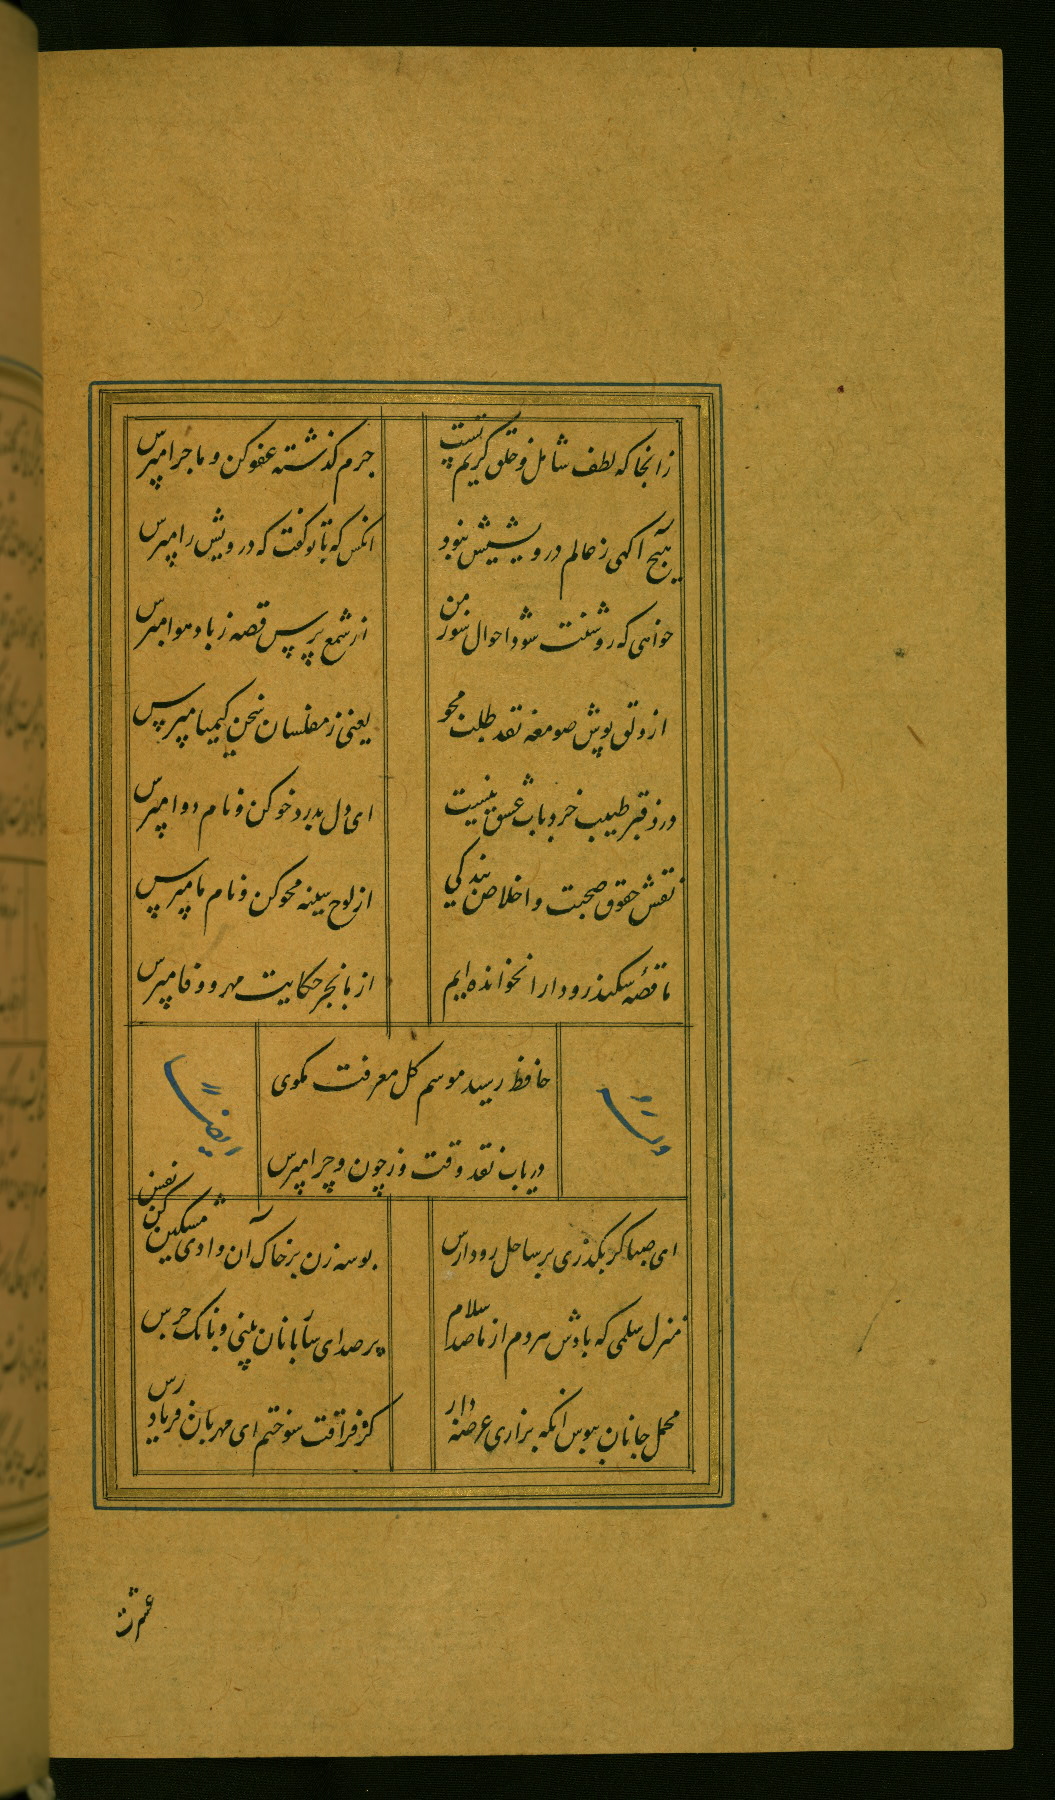 زانجا که لطف شامل و خلق کریم تست
جرم گذشته عفو کن و ماجرا مپرس
هیچ آگهی ز عالم درویشیش نبود
انکس که با تو گفت که درویش را مپرس
خواهی که روشنت شود احوال سوز من
از شمع پرس قصه ز باد هوا مپرس
از دلق پوش صومعه نقد طلب مجو
یعنی ز مفلسان سخن کیمیا مپرس
در دفتر طبیب خرد باب عشق نیست
ای دل بدرد خو کن و نام دوا مپرس
نقش حقوق صحبت و اخلاص بندکی
از لوح سینه محو کن و نام ما مپرس
ما قصّه سکندر و دارا نخوانده ایم
از ما بجز حکایت مهر و وفا مپرس
حافظ رسید موسم کل معرفت مکوی
دریاب نقد وقت و ز چون و چرا مپرس
وله
ایضا
ای صبا کر بکذری بر ساحل رود ارس
بوسه زن بر خاک آن وادی مشکین کن نفس
منزل سلمی که بادش هردم از ما صد سلام
پر صدای ساربانان بینی و بانک جرس
محمل جانان ببوس انکه بزاری عرضه دار
کز فراقت سوختم ای مهربان فریاد رس
عشرت